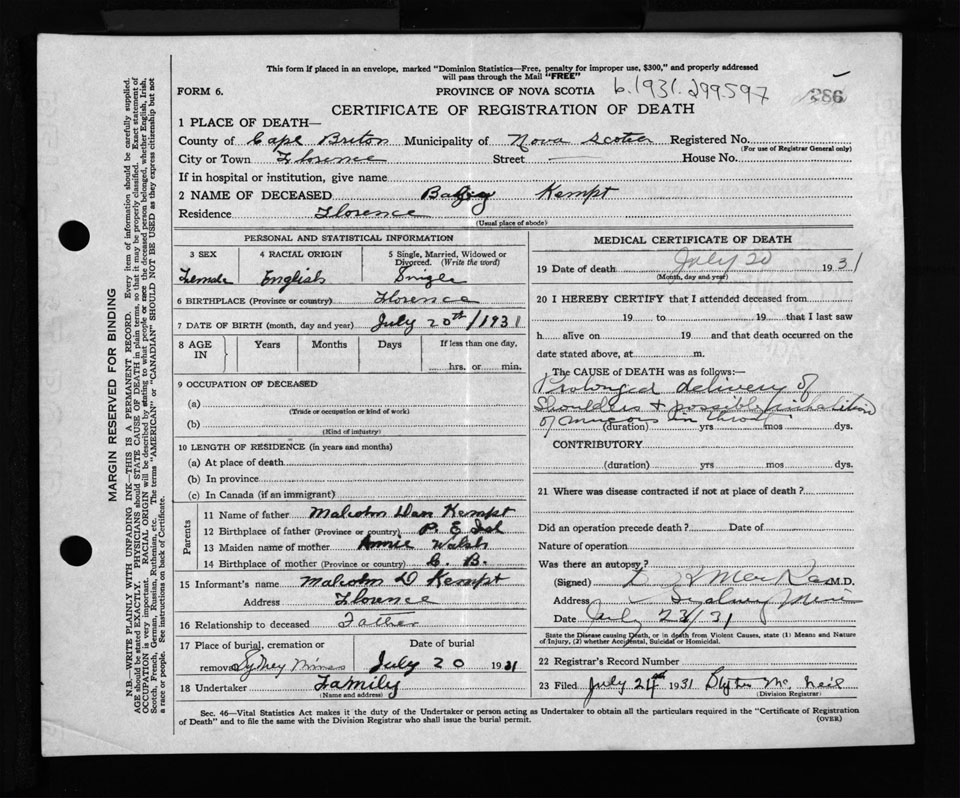 This form if placed in an envelope, marked "Dominion Statistics—Free, penalty for improper use, $300," and properly addressed
will pass through the Mail "FREE"
FORM 6. PROVINCE OF NOVA SCOTIA 6.1931.299597 286
CERTIFICATE OF REGISTRATION OF DEATH
1 PLACE OF DEATH—
County of Cape Breton Municipality of Nova Scotia Registered No.
(For use of Registrar General only)
City or Town Florence Street — House No.
If in hospital or institution, give name
2 NAME OF DECEASED Baby Kempt
Residence Florence
(Usual place of abode)
PERSONAL AND STATISTICAL INFORMATION
3 SEX 4 RACIAL ORIGIN 5 Single, Married, Widowed or
Divorced. (Write the word)
Female English Single
6 BIRTHPLACE (Province or country) Florence
7 DATE OF BIRTH (month, day and year) July 20th/1931
8 AGE IN Years Months Days If less than one day,
hrs. or min.
9 OCCUPATION OF DECEASED
(a)
(Trade or occupation or kind of work)
(b)
(Kind of industry)
10 LENGTH OF RESIDENCE (in years and months)
(a) At place of death
(b) In province
(c) In Canada (if an immigrant)
Parents
11 Name of father Malcolm Dan Kempt
12 Birthplace of father (Province or country) P. E Isl
13 Maiden name of mother Annie Walsh
14 Birthplace of mother (Province or country) C. B.
15 Informant's name Malcolm D Kempt
Address Florence
16 Relationship to deceased Father
17 Place of burial, cremation or Date of burial
removal Sydney Mines July 20 1931
18 Undertaker Family
(Name and address)
MEDICAL CERTIFICATE OF DEATH
19 Date of death July 20 1931
(Month, day and year)
20 I HEREBY CERTIFY that I attended deceased from
19 to 19 that I last saw
h alive on 19 and that death occurred on the
date stated above, at m.
The CAUSE OF DEATH was as follows:—
Prolonged delivery of
Shoulders & possible inhalation
of mucus in throat
(duration) yrs mos dys.
CONTRIBUTORY
(duration) yrs mos dys.
21 Where was disease contracted if not at place of death?
Did an operation precede death? Date of
Nature of operation
Was there an autopsy?
(Signed) M.D.
Address Sydney Mines
Date July 23/31
State the Disease causing Death, or in death from Violent Causes, state (1) Means and Nature
of Injury, (2) whether Accidental, Suicidal or Homicidal.
22 Registrar's Record Number
23 Filed July 24 1931 Mc Neil
(Division Registrar)
Sec. 46—Vital Statistics Act makes it the duty of the Undertaker or person acting as Undertaker to obtain all the particulars required in the "Certificate of Registration
of Death" and to file the same with the Division Registrar who shall issue the burial permit. (OVER)
MARGIN RESERVED FOR BINDING
N.B.—WRITE PLAINLY WITH UNFADING INK—THIS IS A PERMANENT RECORD. Every item of information should be carefully supplied.
AGE should be stated EXACTLY. PHYSICIANS should STATE CAUSE OF DEATH in plain terms, so that it may be properly classified. Exact statement of
OCCUPATION is very important. RACIAL ORIGIN will be described by stating to what people or race the deceased person belonged, whether English, Irish,
Scotch, French, German, Russian, Ruthenian, etc. The terms "AMERICAN" or "CANADIAN" SHOULD NOT BE USED as they express citizenship but not
a race or people. See instructions on back of Certificate.